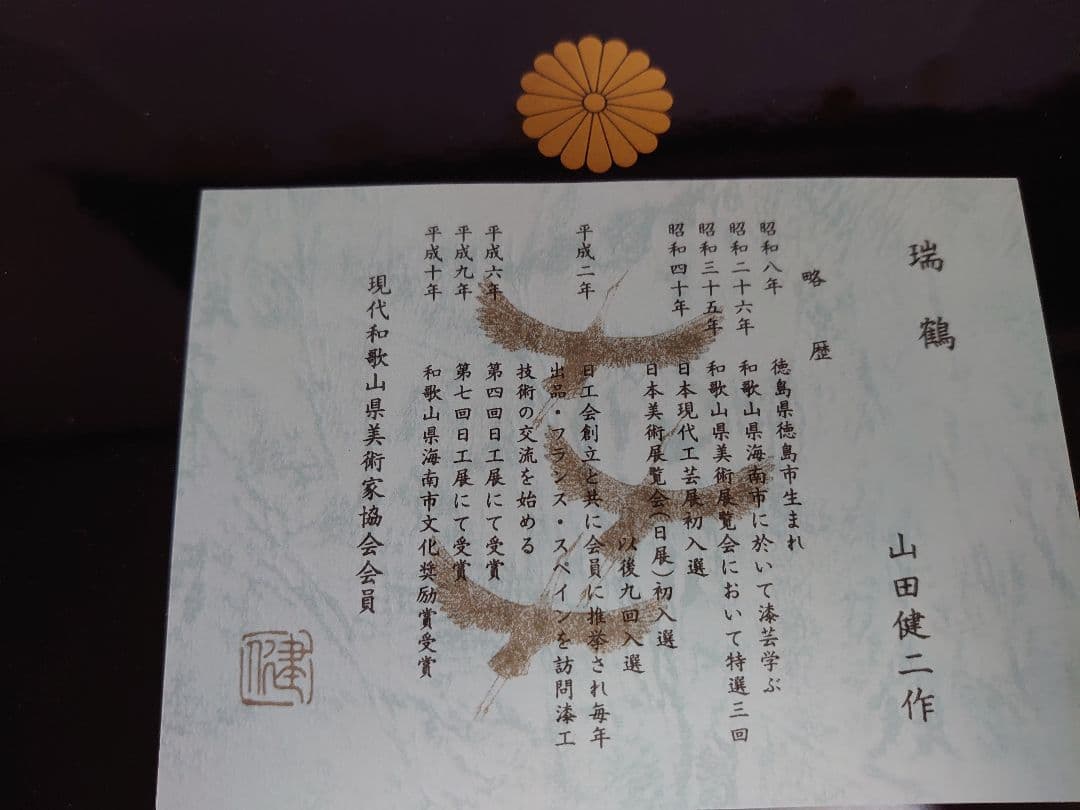 瑞鶴
山田健二作
略歴
昭和八年 徳島県徳島市生まれ
昭和二十六年 和歌山県海南市に於いて漆芸学ぶ
昭和三十五年 和歌山県美術展覧会において特選三回
日本現代工芸展初入選
昭和四十年 日本美術展覧会(日展)初入選
以後九回入選
平成二年 日工会創立と共に会員に推挙され毎年
出品・フランス・スペインを訪問漆工
技術の交流を始める
平成六年 第四回日工展にて受賞
平成九年 第七回日工展にて受賞
平成十年 和歌山県海南市文化奨励賞受賞
現代和歌山県美術家協会会員
健